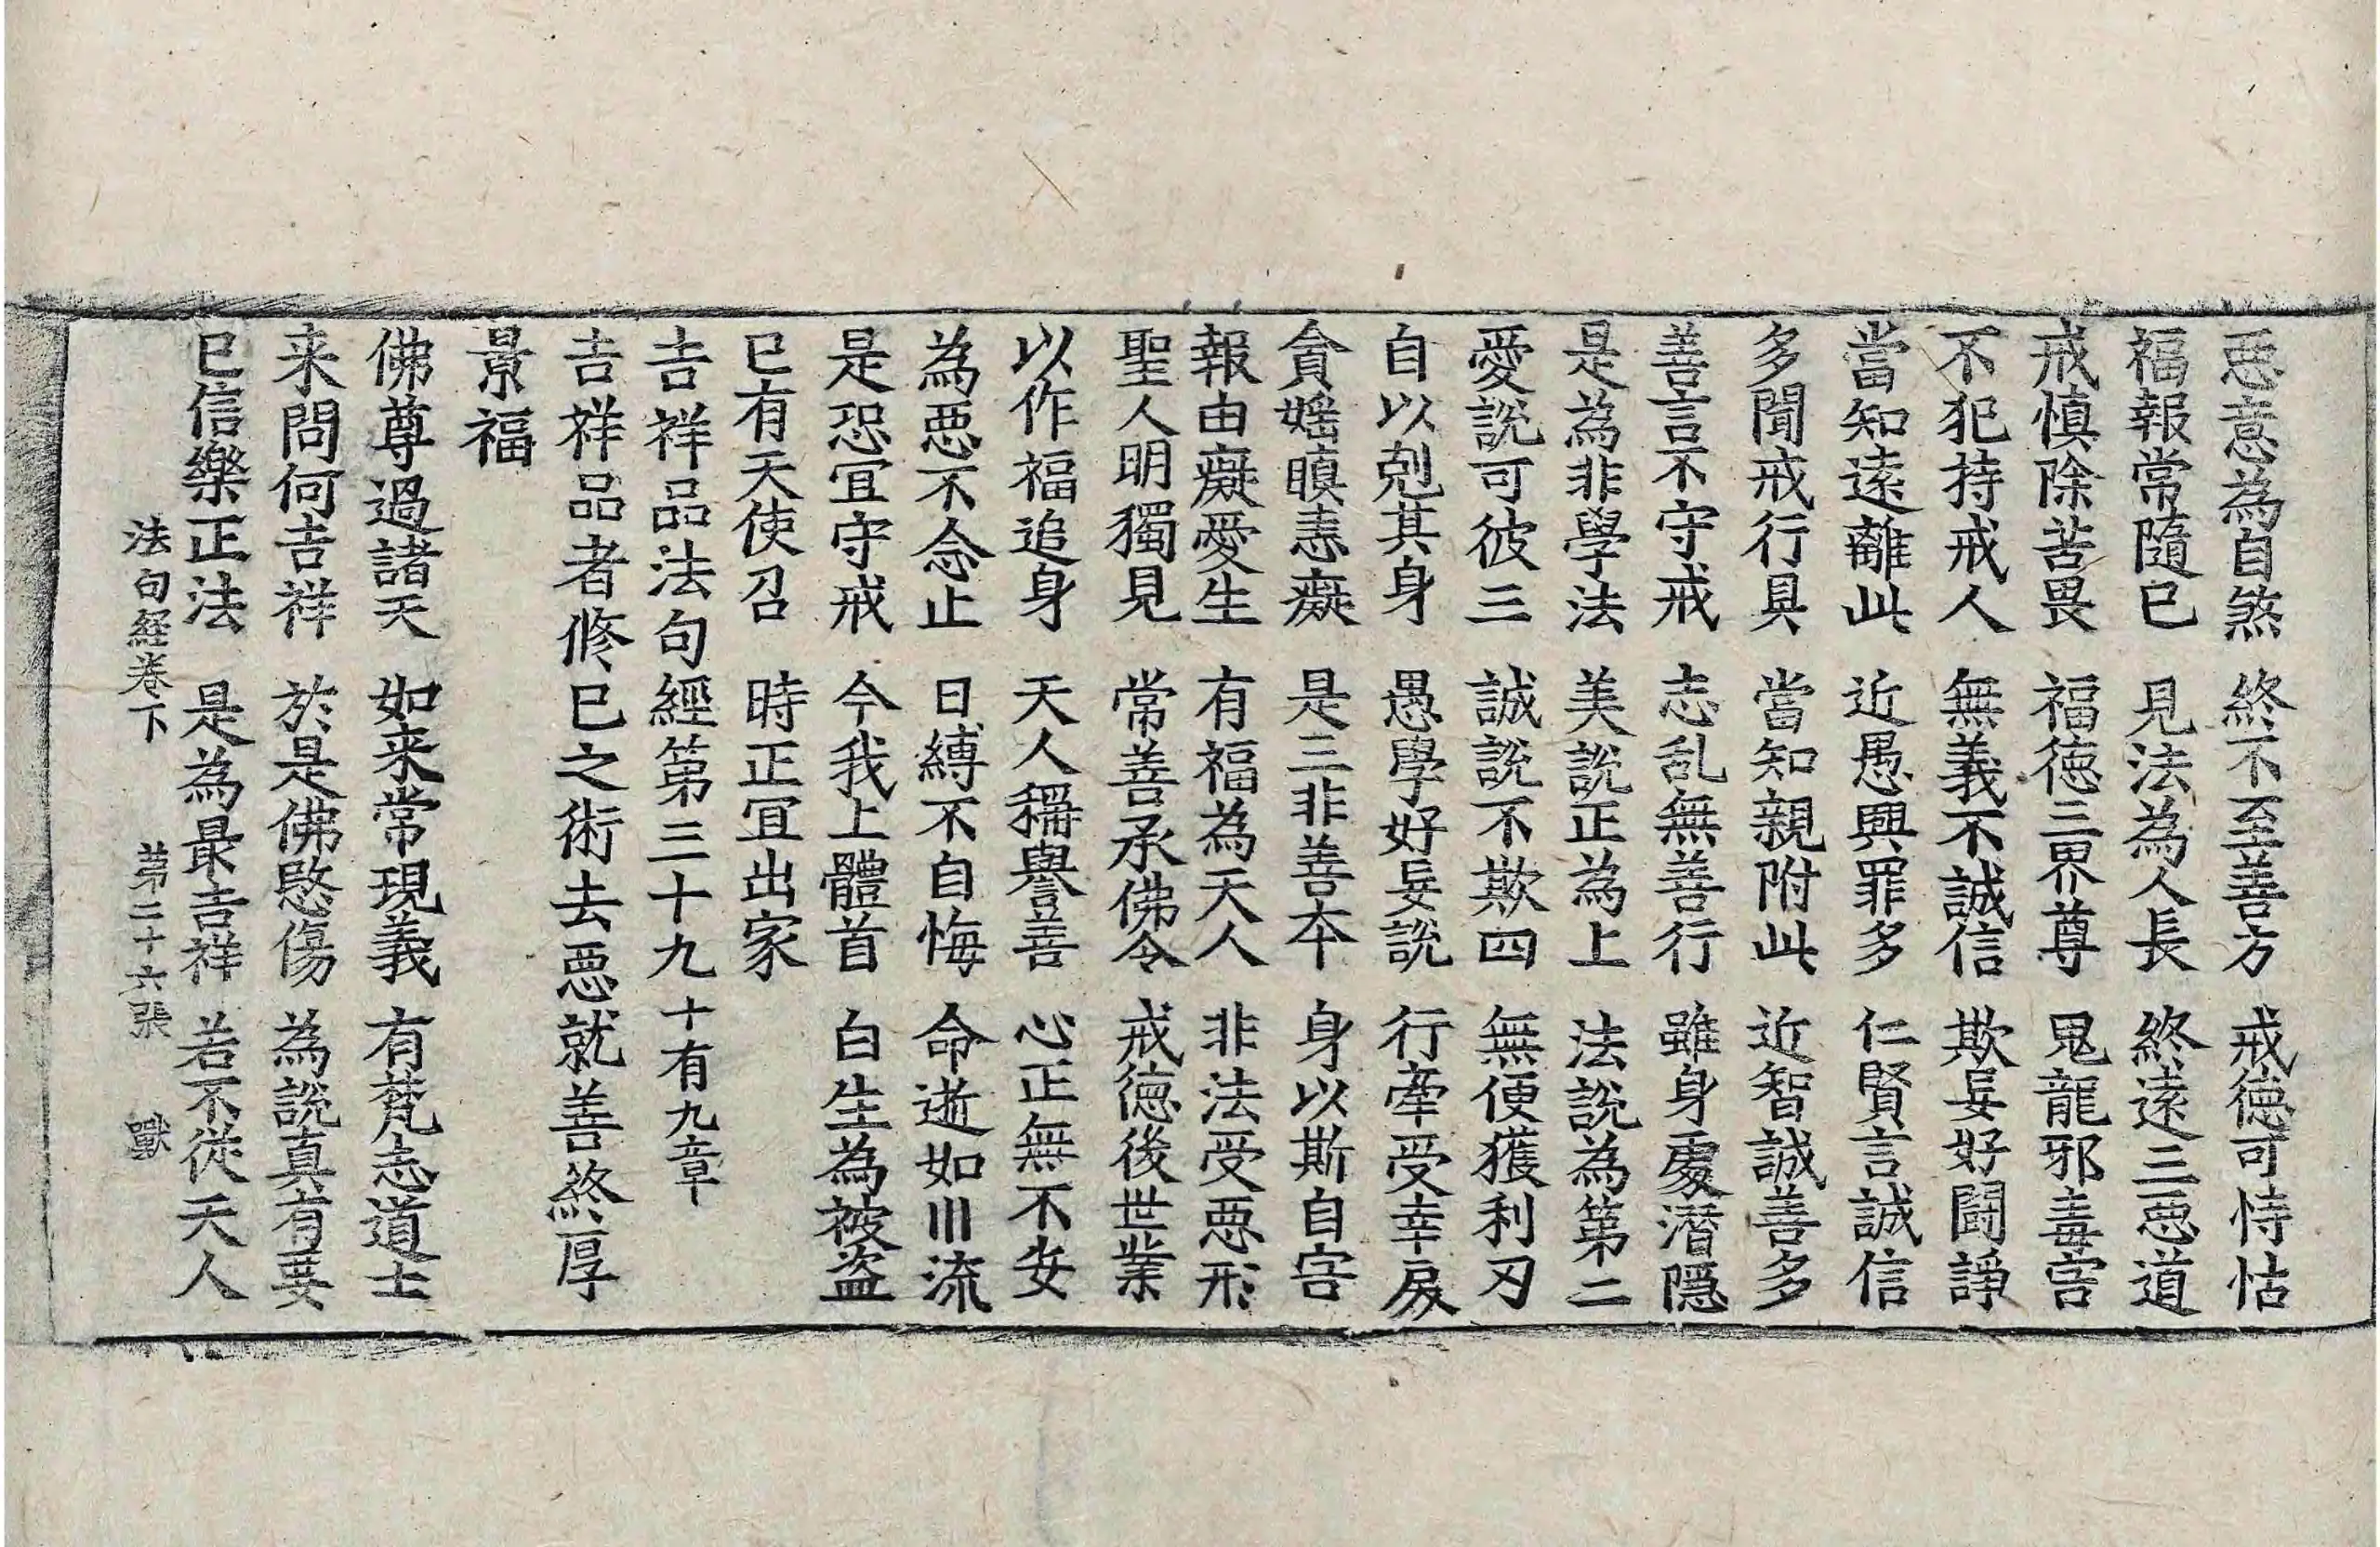 惡意為自煞 終不至善方 戒德可恃怙
福報常隨已 見法為人長 終遠三惡道
戒慎除苦畏 福德三界尊 鬼龍邪毒害
不犯持戒人 無義不誠信 欺妄好鬪諍
當知遠離此 近愚興罪多 仁賢言誠信
多聞戒行具 當知親附此 近智誠善多
善言不守戒 志乱無善行 雖身處潛隱
是為非學法 美說正為上 法說為第二
愛說可彼三 誠說不欺四 無便獲利刃
自以剋其身 愚學好妄說 行牽受幸戾
貪婬瞋恚癡 是三非善本 身以斯自害
報由癡愛生 有福為天人 非法受惡形
聖人明獨見 常善承佛令 戒德後世業
以作福追身 天人稱譽善 心正無不安
為惡不念止 日縛不自悔 命逝如川流
是恐冝守戒 今我上體首 白生為被盗
已有天使召 時正冝出家
吉祥品法句經第三十九 十有九章
吉祥品者修已之術去惡就善終厚
景福
佛尊過諸天 如来常現義 有梵志道士
来問何吉祥 於是佛愍傷 為說真有要
已信樂正法 是為最吉祥 若不從天人
法句經卷下 第二十六張 獸